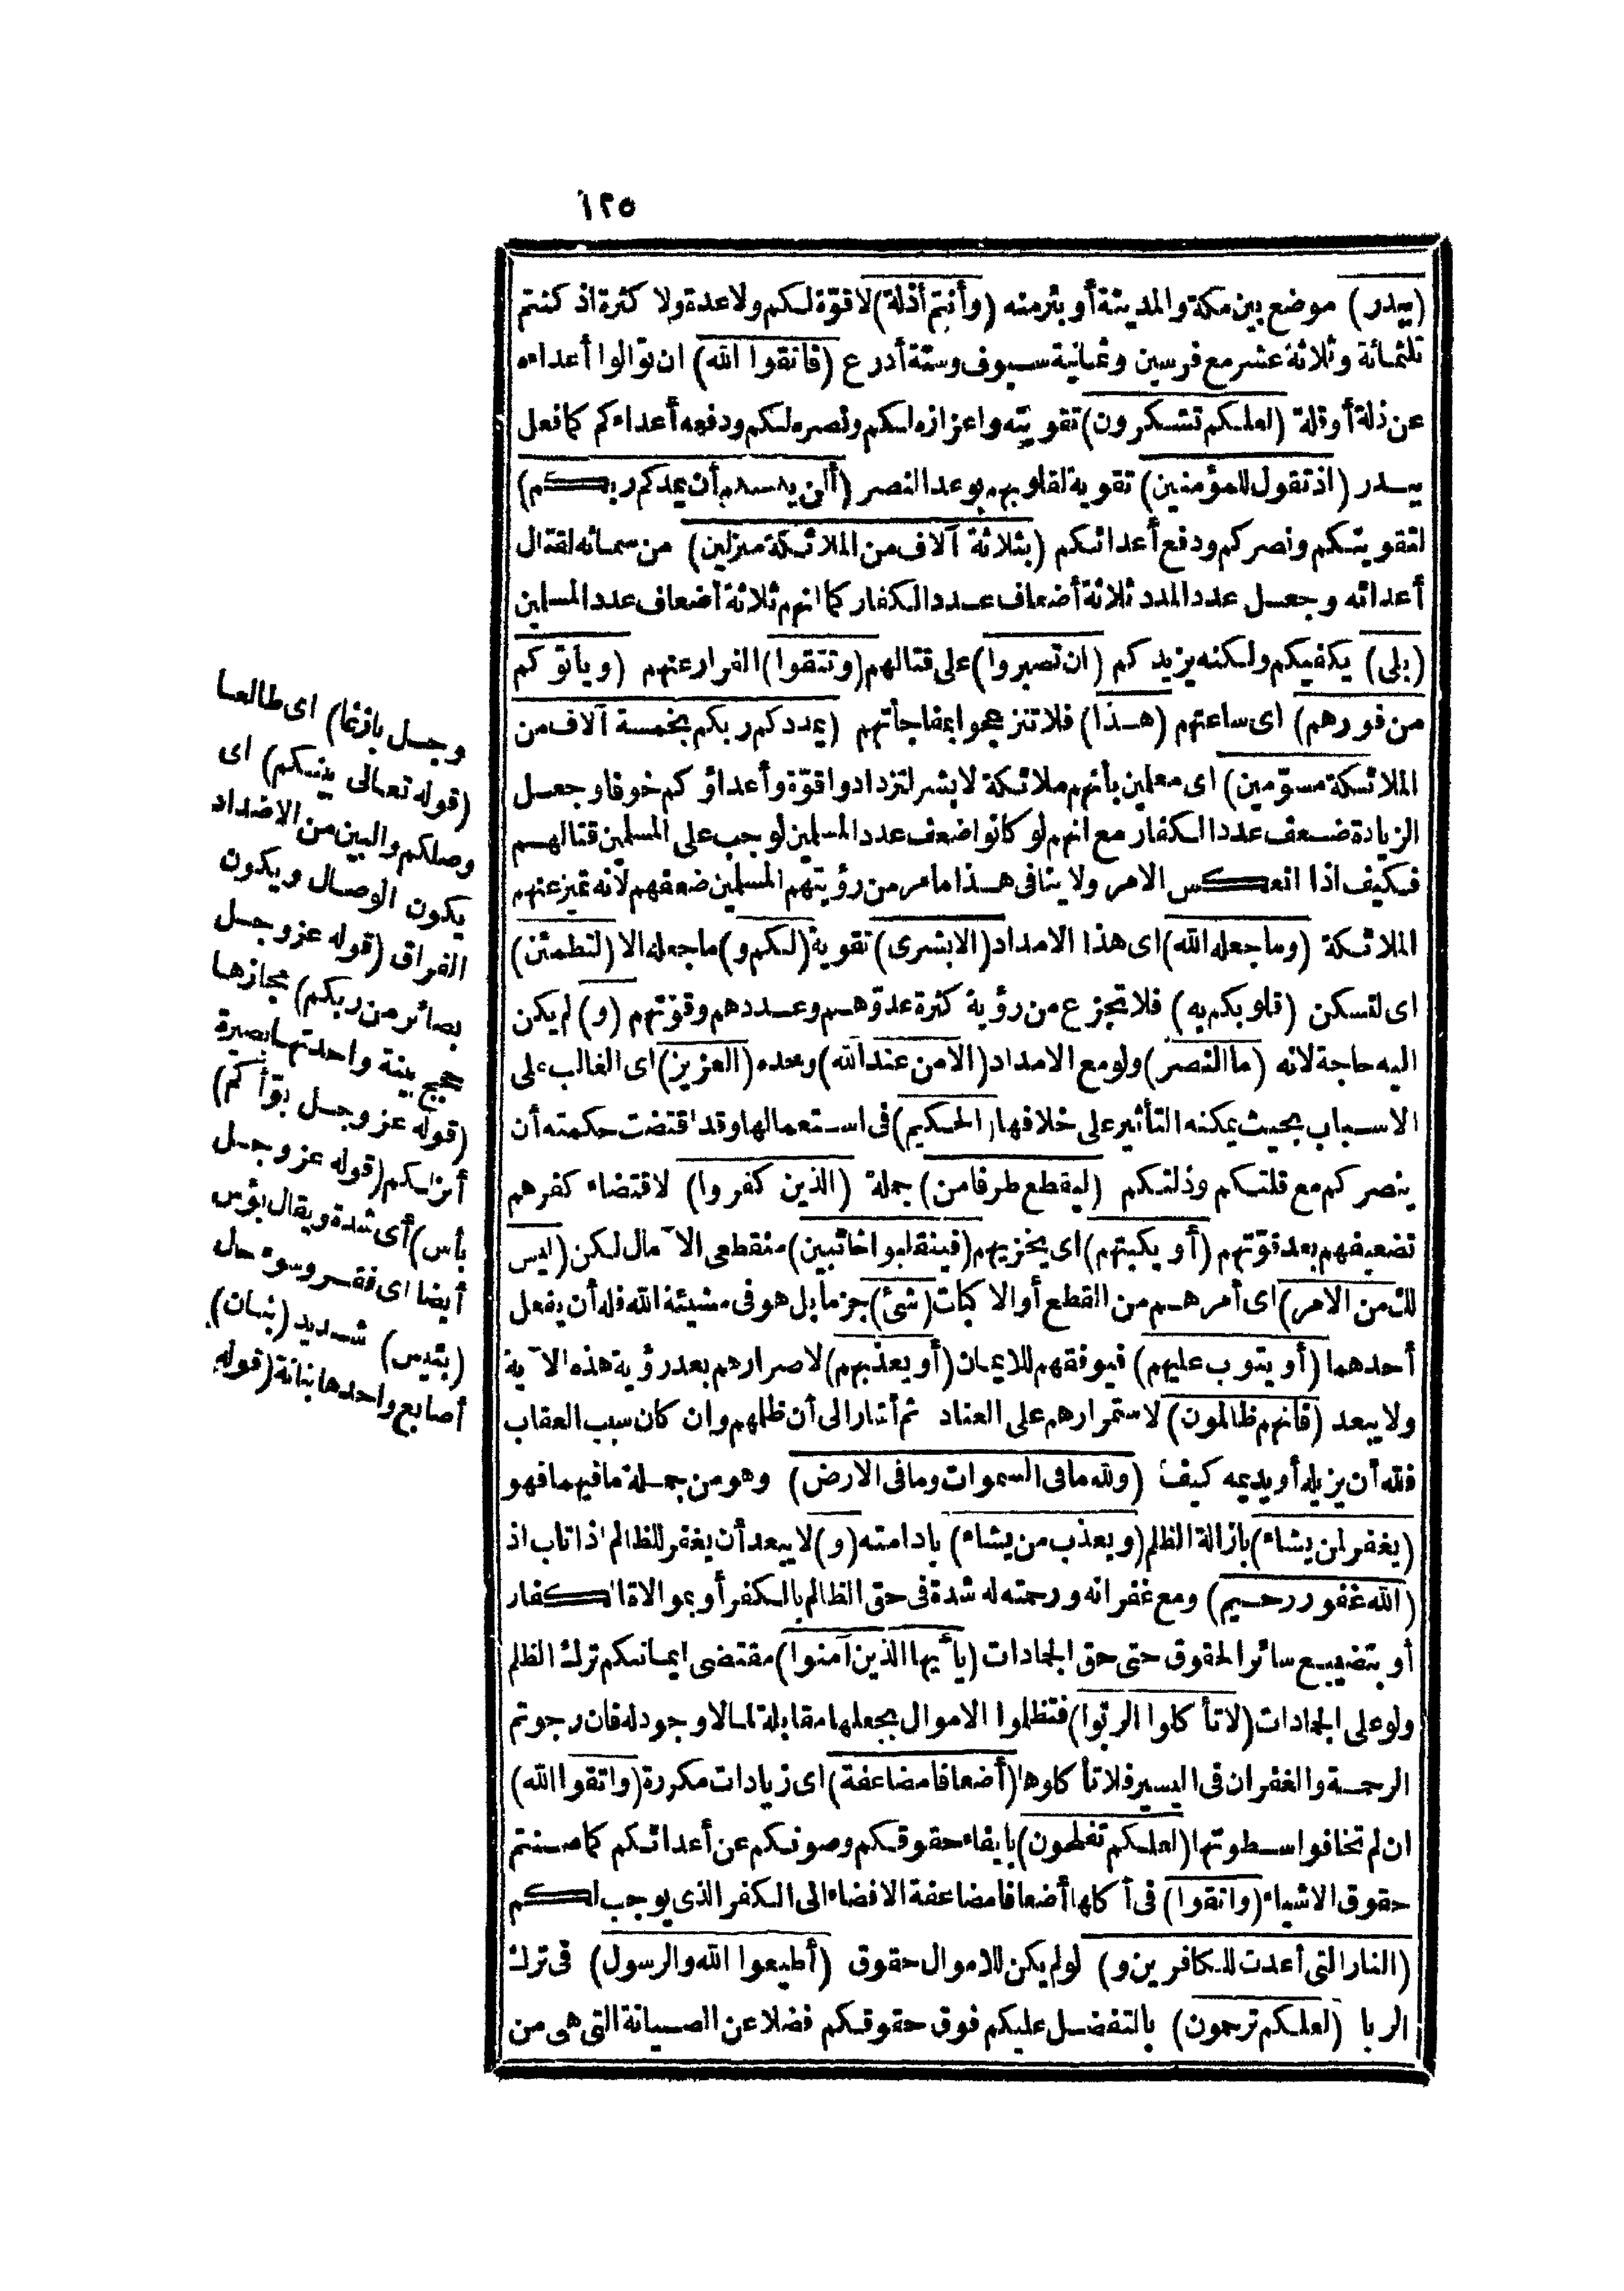 ١٢٥
(ببدر) موضع بين مكة والمدينة أو بئر منه (وأنتم أذلة) لا قوّة لكم ولا عدة ولا كثرة اذ كنتم
ثلثمائة وثلاثة عشر مع فرسين وثمانية سيوف وستة أدرع (فاتقوا الله) ان توالوا أعداءه
عن ذلة أو قلة (لعلكم تشكرون) تقويته واعزازه لكم ونصره لكم ودفعه أعداءكم كما فعل
ببدر (اذ تقول للمؤمنين) تقوية لقلوبهم بوعد النصر (ألن يكفيكم أن يمدكم ربكم)
لتقويتكم ونصركم ودفع أعدائكم (بثلاثة آلاف من الملائكة منزلين) من سمائه لقتال
أعدائه وجعل عدد المدد ثلاثة أضعاف عدد الكفار كما انهم ثلاثة أضعاف عدد المسلمين
(بلى) يكفيكم ولكنه يزيدكم (ان تصبروا) على قتالهم (وتتقوا) الفرار عنهم (ويأتوكم
من فورهم) اى ساعتهم (هذا) فلا تنزعجوا بمفاجأتهم (يمددكم ربكم بخمسة آلاف من
الملائكة مسوّمين) اى معلمين بأنهم ملائكة لا بشر لتزدادوا قوّة وأعداؤكم خوفا وجعل
الزيادة ضعف عدد الكفار مع انهم لو كانوا ضعف عدد المسلمين لوجب على المسلمين قتالهم
فكيف اذا انعكس الامر ولا ينافى هذا ما مر من رؤيتهم المسلمين ضعفهم لانه تميز عنهم
الملائكة (وما جعله الله) اى هذا الامداد (الا بشرى) تقوية (لكم و) ما جعله الا (لتطمئن)
اى لتسكن (قلوبكم به) فلا تجزع من رؤية كثرة عدوّهم وعددهم وقوّتهم (و) لم يكن
اليه حاجة لانه (ما النصر) ولو مع الامداد (الا من عند الله) وحده (العزيز) اى الغالب على
الاسباب بحيث يمكنه التأثير على خلافها (الحكيم) فى استعمالها وقد اقتضت حكمته أن
ينصركم مع قلتكم وذلتكم (ليقطع طرفا من) جملة (الذين كفروا) لاقتضاء كفرهم
تضعيفهم بعد قوّتهم (أو يكبتهم) اى يخزيهم (فينقلبوا خائبين) منقطعى الآمال لكن (ليس
لك من الامر) اى أمرهم من القطع أو الاكبات (شئ) جزما بل هو فى مشيئة الله فله أن يفعل
أحدهما (أو يتوب عليهم) فيوفقهم للايمان (أو يعذبهم) لاصرارهم بعد رؤية هذه الآية
ولا يبعد (فانهم ظالمون) لاستمرارهم على العناد ثم أشار الى أن ظلمهم وان كان سبب العقاب
فلله أن يزيله أو يديمه كيف (ولله ما فى السموات وما فى الارض) وهو من جملة ما فيهما فهو
(يغفر لمن يشاء) بازالة الظلم (ويعذب من يشاء) بادامته (و) لا يبعد أن يغفر للظالم اذا تاب اذ
(الله غفور رحيم) ومع غفرانه ورحمته له شدة فى حق الظالم بالكفر أو بموالاة الكفار
أو بتضييع سائر الحقوق حتى حق الجمادات (يأيها الذين آمنوا) مقتضى ايمانكم ترك الظلم
ولو على الجمادات (لا تأكلوا الربوا) فتظلموا الاموال بجعلها مقابلة لما لا وجود له فان رجوتم
الرحمة والغفران فى اليسير فلا تأكلوها (أضعافا مضاعفة) اى زيادات مكررة (واتقوا الله)
ان لم تخافوا سطوتها (لعلكم تفلحون) بايفاء حقوقكم وصونكم عن أعدائكم كما صنتم
حقوق الاشياء (واتقوا) فى أكلها أضعافا مضاعفة الافضاء الى الكفر الذى يوجب لكم
(النار التى أعدت للكافرين و) لو لم يكن للاموال حقوق (أطيعوا الله والرسول) فى ترك
الربا (لعلكم ترحمون) بالتفضل عليكم فوق حقوقكم فضلا عن الصيانة التى هى من
وجل بازغا) اى طالعا
(قوله تعالى بينكم) اى
وصلكم والبين من الاضداد
يكون الوصال ويكون
الفراق (قوله عز وجل
بصائر من ربكم) مجازها
حجج بينة واحدتها بصيرة
(قوله عز وجل بوّأكم)
أنزلكم (قوله عز وجل
بأس) أى شدة ويقال بؤس
أيضا اى فقر وسوء حال
(بئيس) شديد (بنان)
أصابع واحدها بنانة (قوله